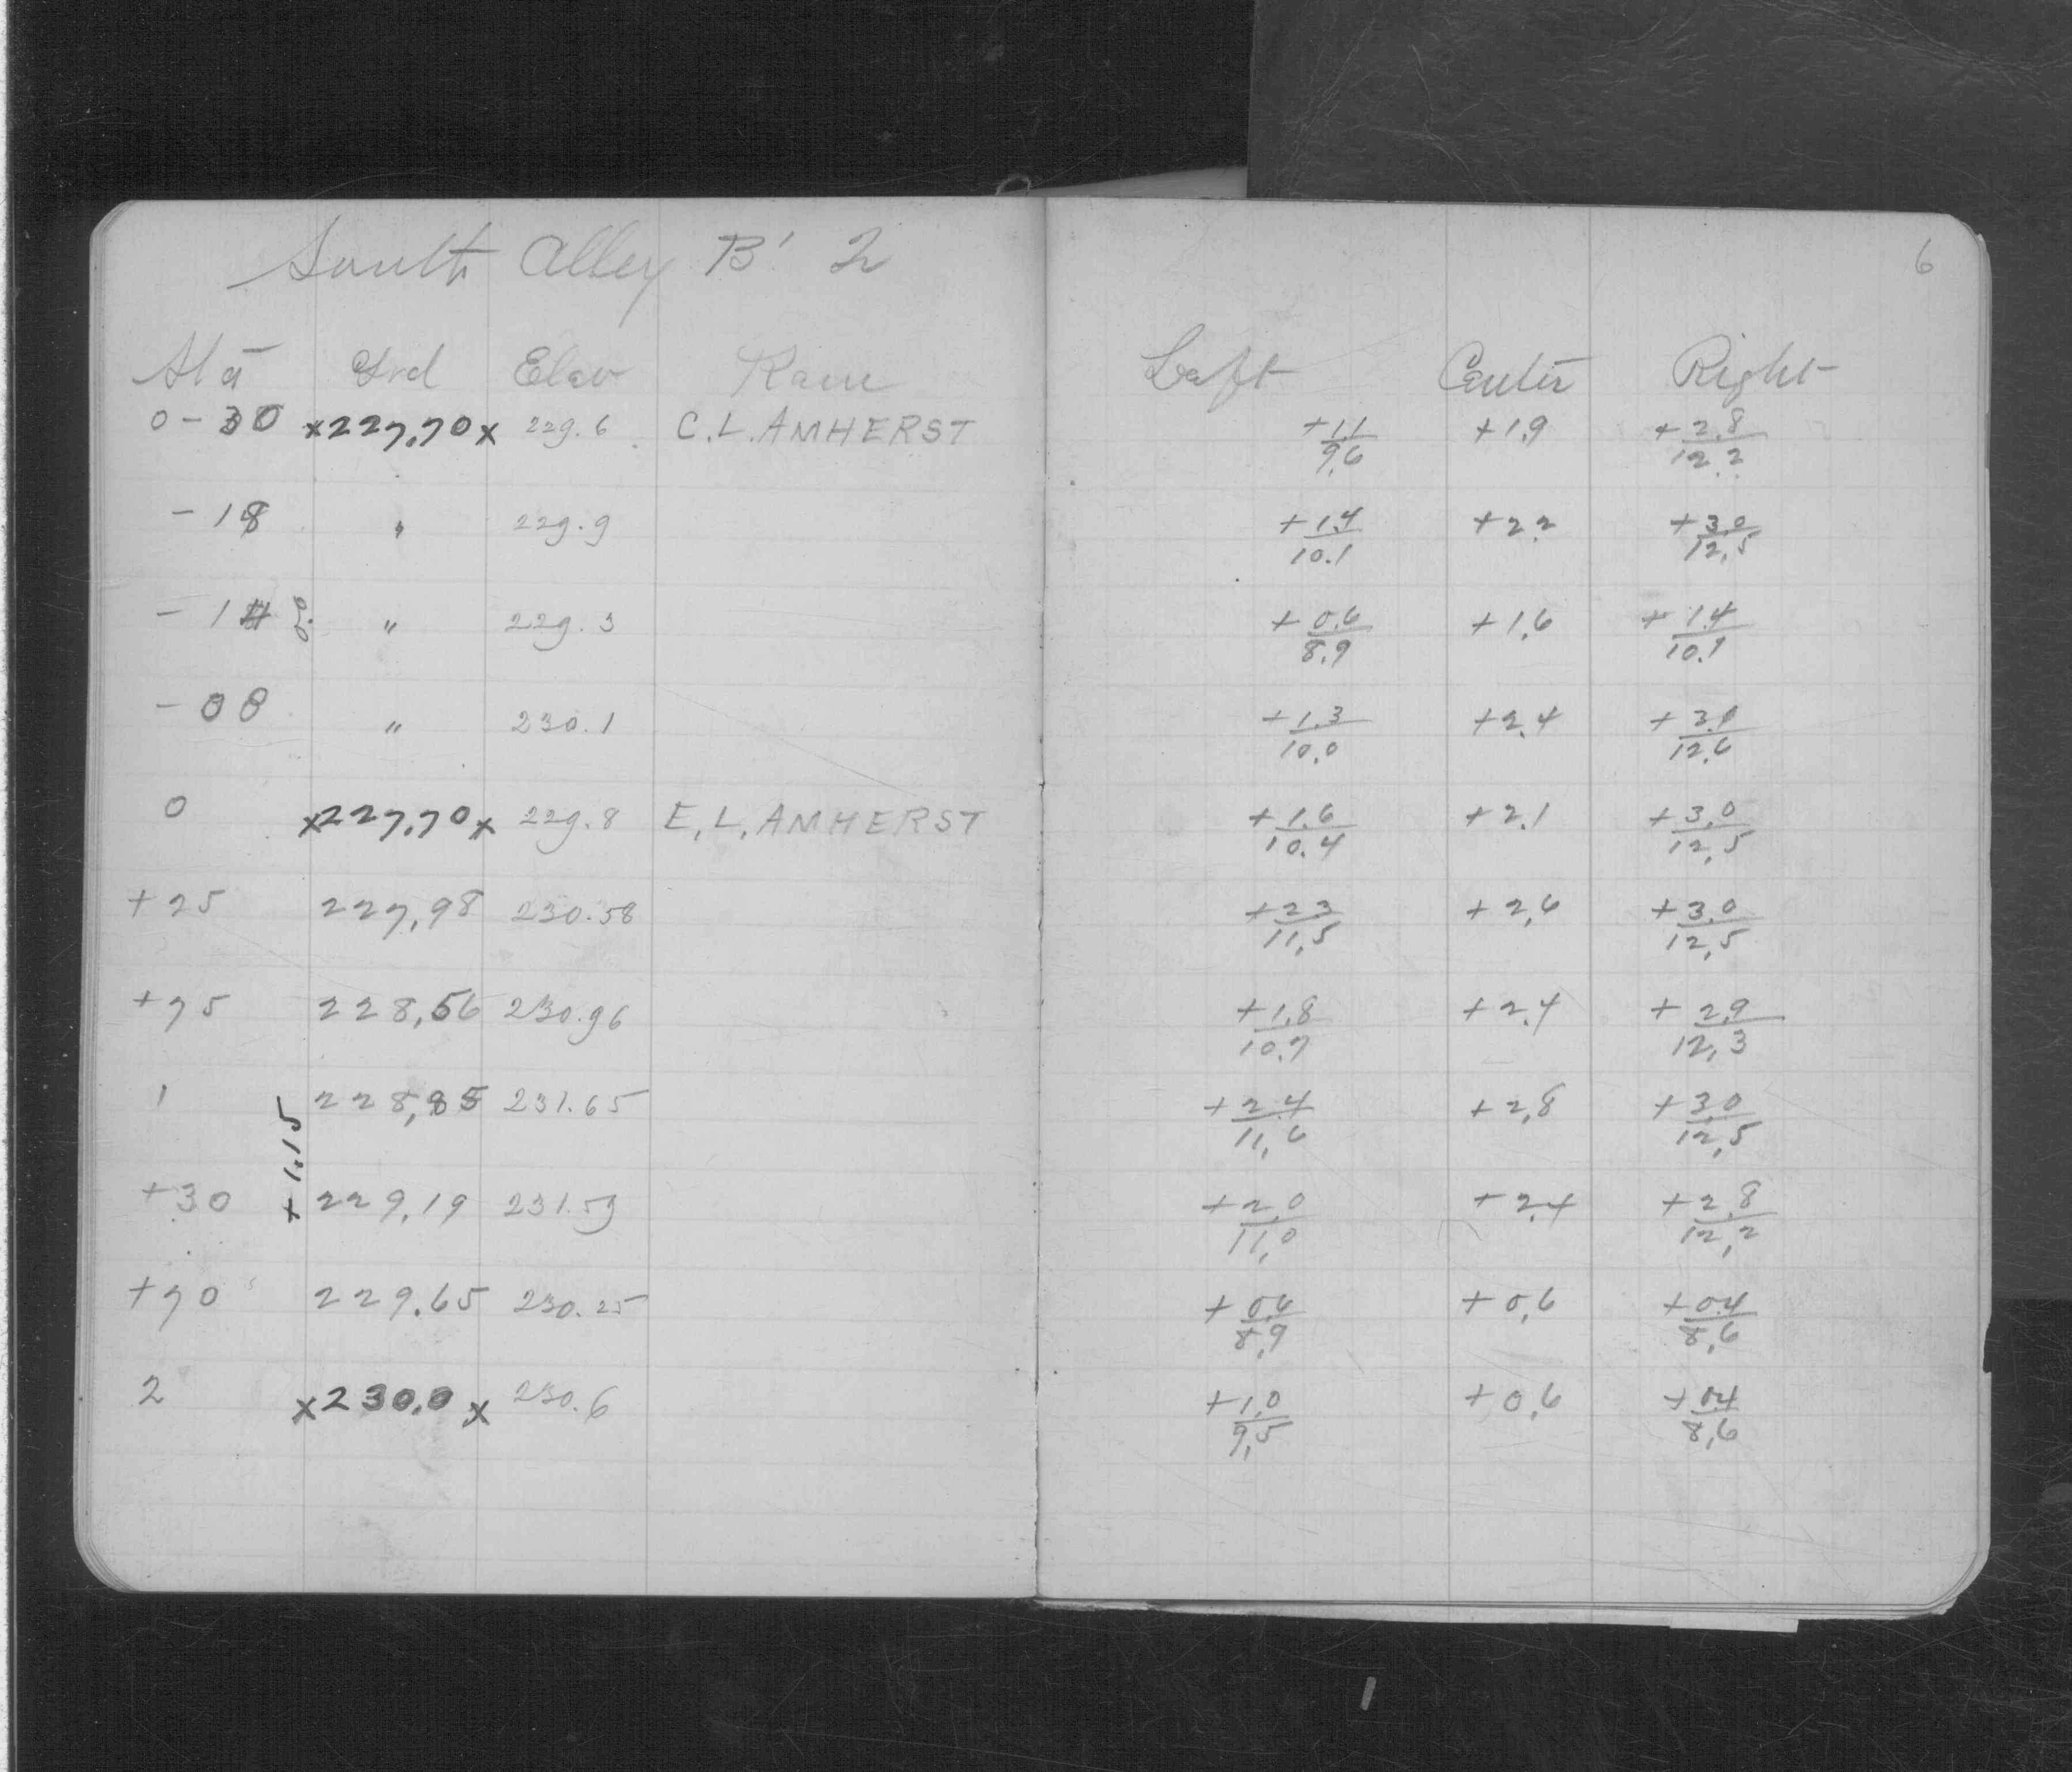 South Alley B' 2
6
Sta Grd Elev Rem Left Center Right
0-30 x227.70x 229.6 C.L. AMHERST +1.1/9.6 +1.9 +2.8/12.2
-18 " 229.9 +1.4/10.1 +2.2 +3.0/12.5
-1 " 229.3 +0.6/8.9 +1.6 +1.4/10.1
-08 " 230.1 +1.3/10.0 +2.4 +3.1/12.6
0 x227.70x 229.8 E.L. AMHERST +1.6/10.4 +2.1 +3.0/12.5
+25 227.98 230.58 +2.3/11.5 +2.6 +3.0/12.5
+75 228.56 230.96 +1.8/10.7 +2.4 +2.9/12.3
1 228.85 231.65 +2.4/11.6 +2.8 +3.0/12.5
+1.15
+30 229.19 231.59 +2.0/11.0 +2.4 +2.8/12.2
+70 229.65 230.25 +0.6/8.9 +0.6 +0.4/8.6
2 x230.0x 230.6 +1.0/9.5 +0.6 +0.4/8.6